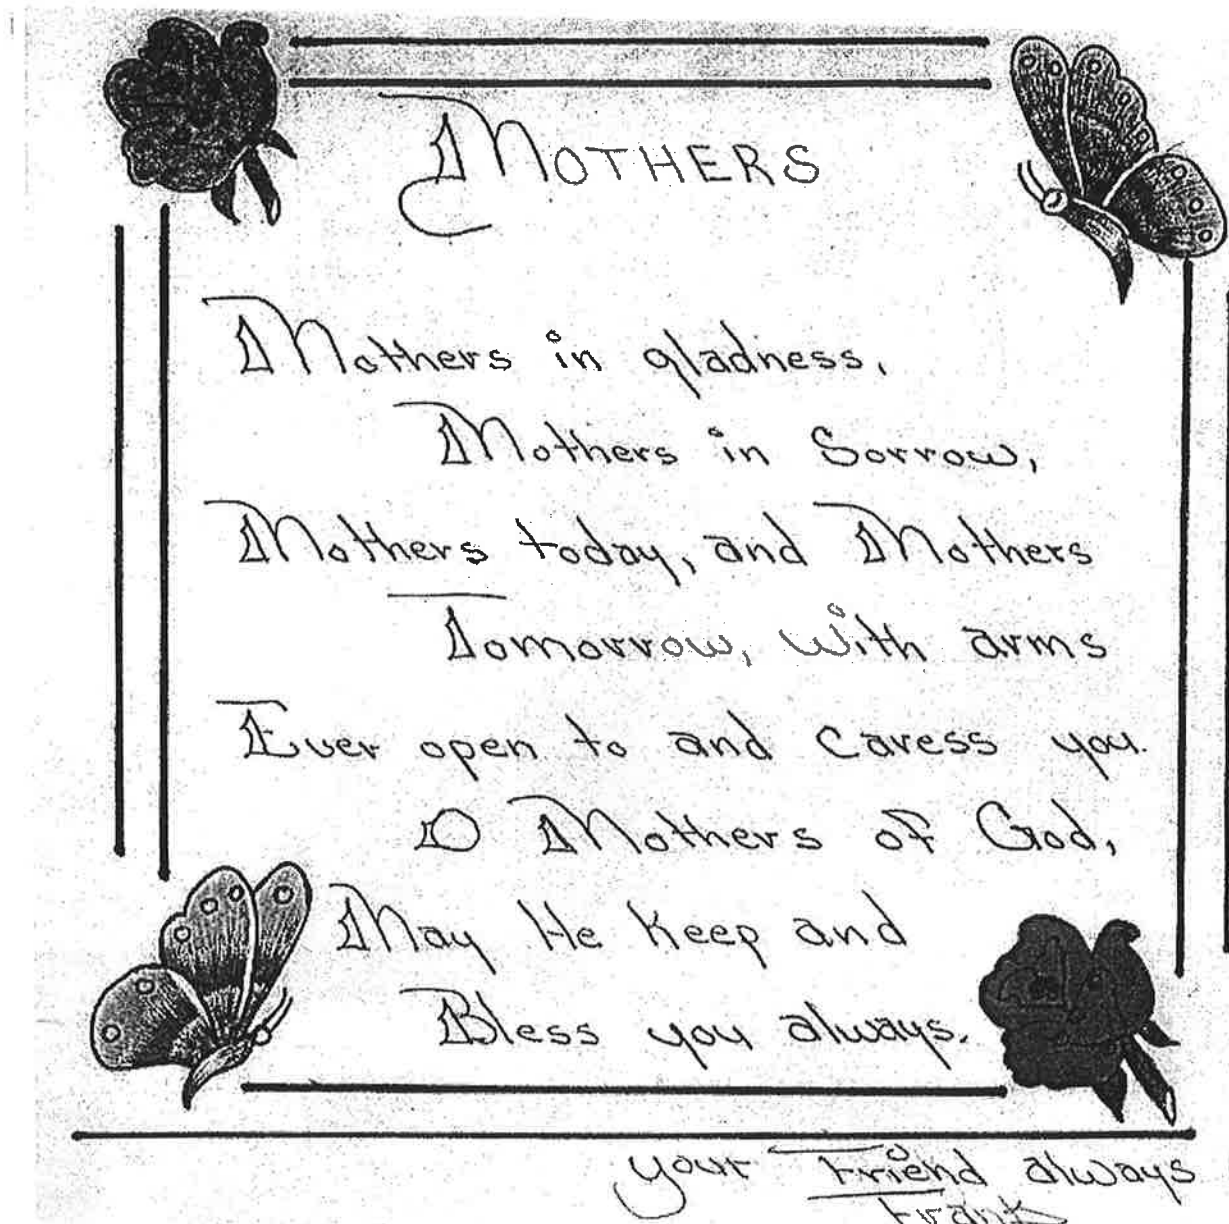 MOTHERS
Mothers in gladness,
Mothers in Sorrow,
Mothers today, and Mothers
Tomorrow, with arms
Ever open to and caress you.
O Mothers of God,
May He Keep and
Bless you always.
your Friend always
Frank